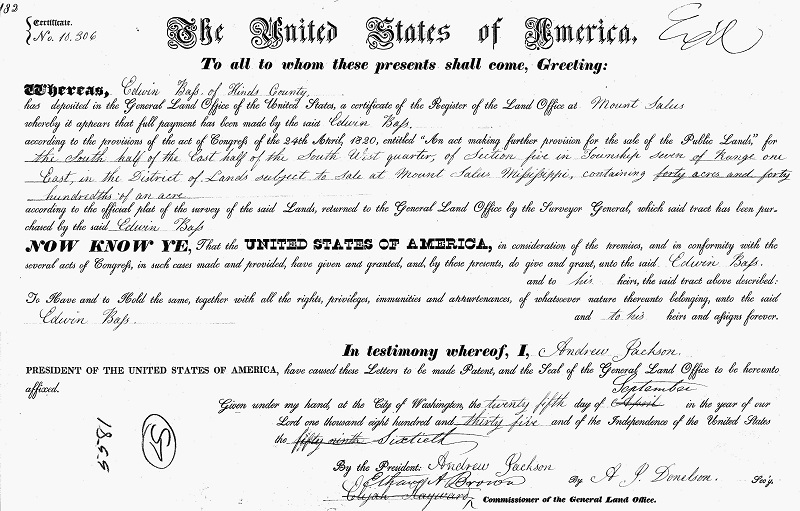 182
Certificate.
No. 18.306
The United States of America,
To all to whom these presents shall come, Greeting:
Whereas, Edwin Baſs. of Hinds County,
has deposited in the General Land Office of the United States, a certificate of the Register of the Land Office at Mount Salus
whereby it appears that full payment has been made by the said Edwin Baſs.
according to the provisions of the act of Congreſs of the 24th April, 1820, entitled "An act making further provision for the sale of the Public Lands," for
the South half of the East half of the South West quarter, of Section five in Township seven of Range one
East, in the District of Lands subject to Sale at Mount Salus Miſsiſsippi, containing forty acres and forty
hundredths of an acre
according to the official plat of the survey of the said Lands, returned to the General Land Office by the Surveyor General, which said tract has been pur-
chased by the said Edwin Baſs
NOW KNOW YE, That the UNITED STATES OF AMERICA, in consideration of the premises, and in conformity with the
several acts of Congreſs, in such cases made and provided, have given and granted, and, by these presents, do give and grant, unto the said Edwin Baſs.
and to his heirs, the said tract above described:
To Have and to Hold the same, together with all the rights, privileges, immunities and appurtenances, of whatsoever nature thereunto belonging, unto the said
Edwin Baſs. and to his heirs and aſsigns forever.
In testimony whereof, I, Andrew Jackson.
PRESIDENT OF THE UNITED STATES OF AMERICA, have caused these Letters to be made Patent, and the Seal of the General Land Office to be hereunto
affixed.
September
Given under my hand, at the City of Washington, the twenty fifth day of April in the year of our
Lord one thousand eight hundred and thirty five and of the Independence of the United States
the fifty ninth Sixtieth
By the President: Andrew Jackson
By A. J. Donelson. Sec'y.
Ethan A. Brown
Elijah Hayward, Commissioner of the General Land Office.
1855